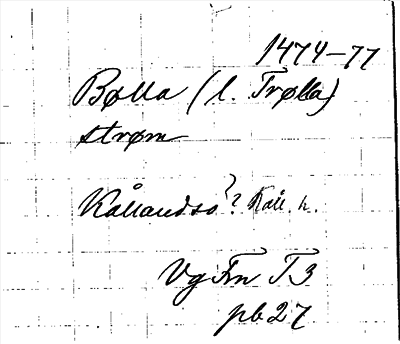 1474-77
Bølla (l. Trølla)
strøm
Kållandsö? Kåll. h.
Vg Fm T3
pb 27